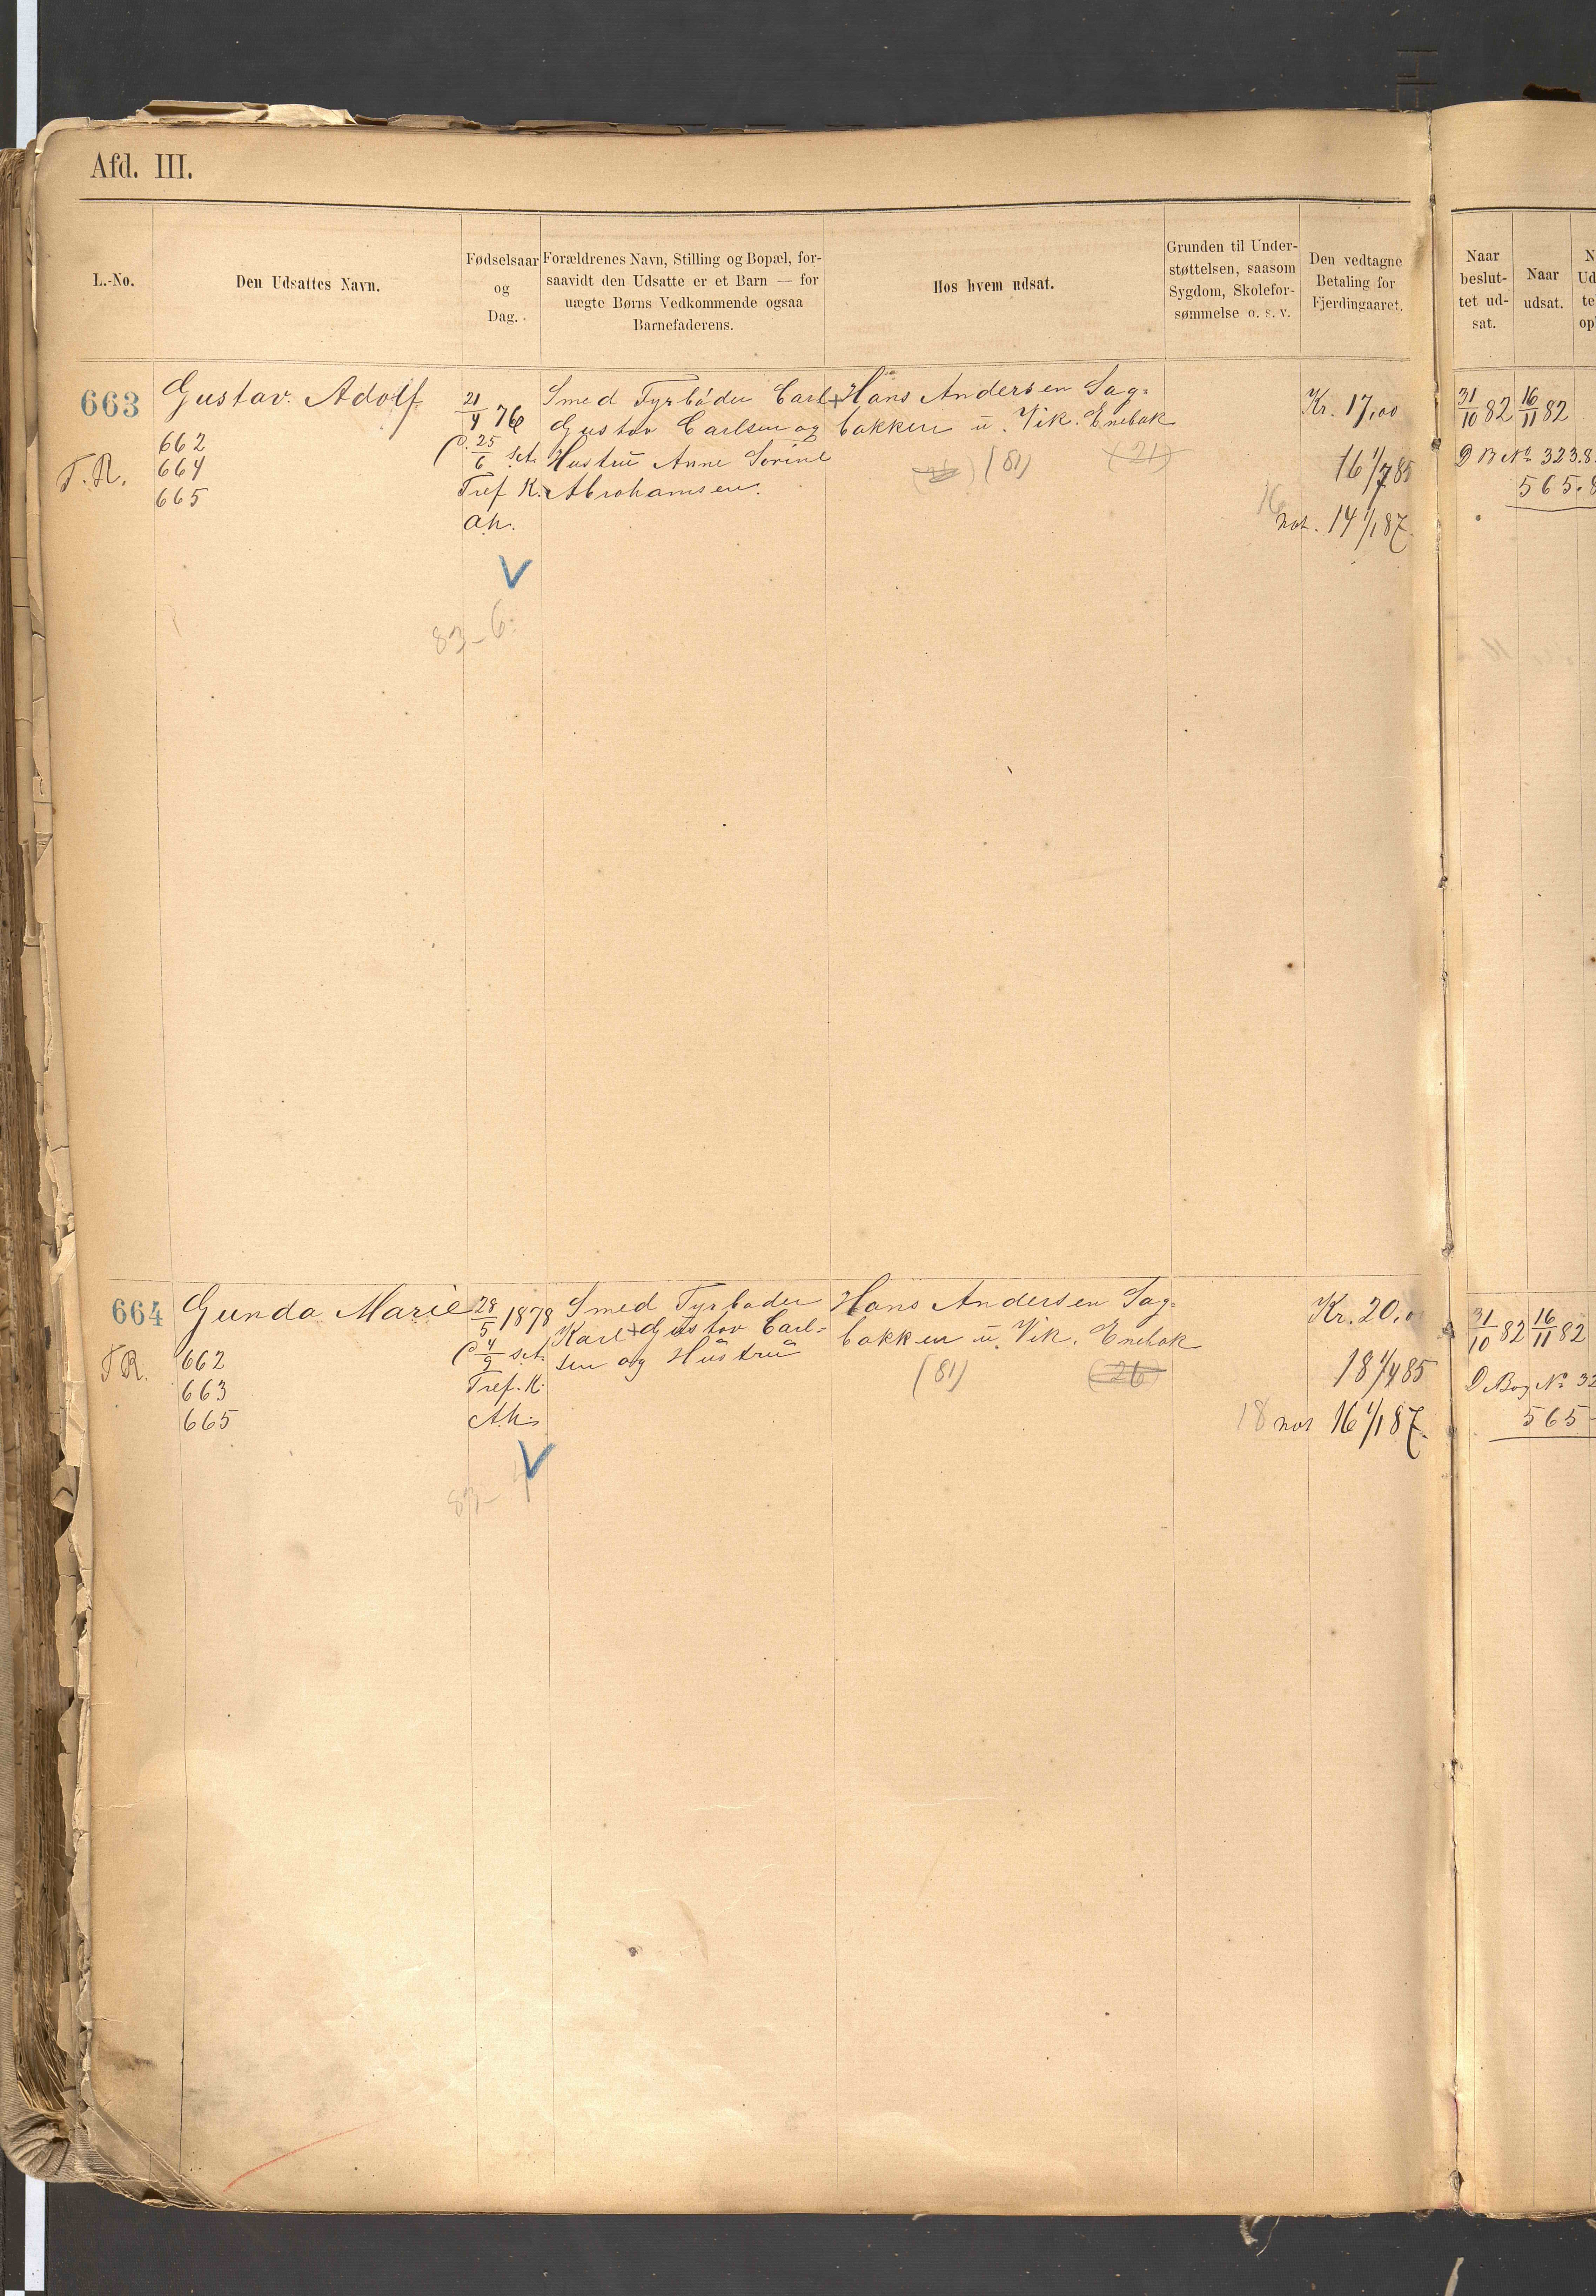 Afd. III.
L.-No.
Den Udsattes Navn.
Fødselsaar
og
Dag.
Forældrenes Navn, Stilling og Bopæl, for-
saavidt den Udsatte er et Barn — for
uægte Børns Vedkommende ogsaa
Barnefaderens.
Hos hvem udsat.
Grunden til Under-
støttelsen, saasom
Sygdom, Skolefor-
sømmelse o. s. v.
Den vedtagne
Betaling for
Fjerdingaaret.
Naar
beslut-
tet ud-
sat.
Naar
udsat.
663
Gustav. Adolf
662
664
665
T.R.
21/4 76
25/6 set.
Tref K.
a.h.
V
83-6.
Smed Fyrbøder Carl
Gustav Carlsen og
Hustru Anne Sorine
Abrahamsen.
Hans Andersen Sag-
bakken u. Vik. Enebak
(81) (21)
Kr. 17,00
16 1/7 85
16
not. 14 1/1 87.
31/10 82
16/11 82
D B No 323.8
565.8
664
Gunda Marie
T R.
662
663
665
28/5 1878
4/9 set.
Tref. K.
A.h.
V
Smed Fyrbøder
Karl Gustav Carl-
sen og Hustru
Hans Andersen Sag-
bakken u. Vik. Enebak
(81) (26)
Kr. 20,0
18 1/4 85
18 not 16 1/1 87.
31/10 82
16/11 82
D Bog No 32
565